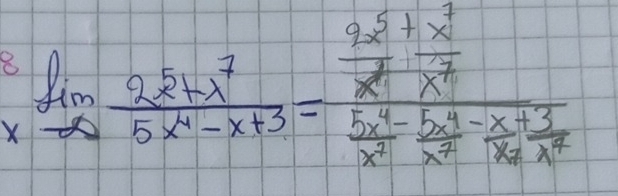 8 lim x→∞ (2x^5 + x^7)/(5x^4 - x + 3) = (2x^5/x^7 + x^7/x^7)/(5x^4/x^7 - 5x^4/x^7 - x/x^7 + 3/x^7)